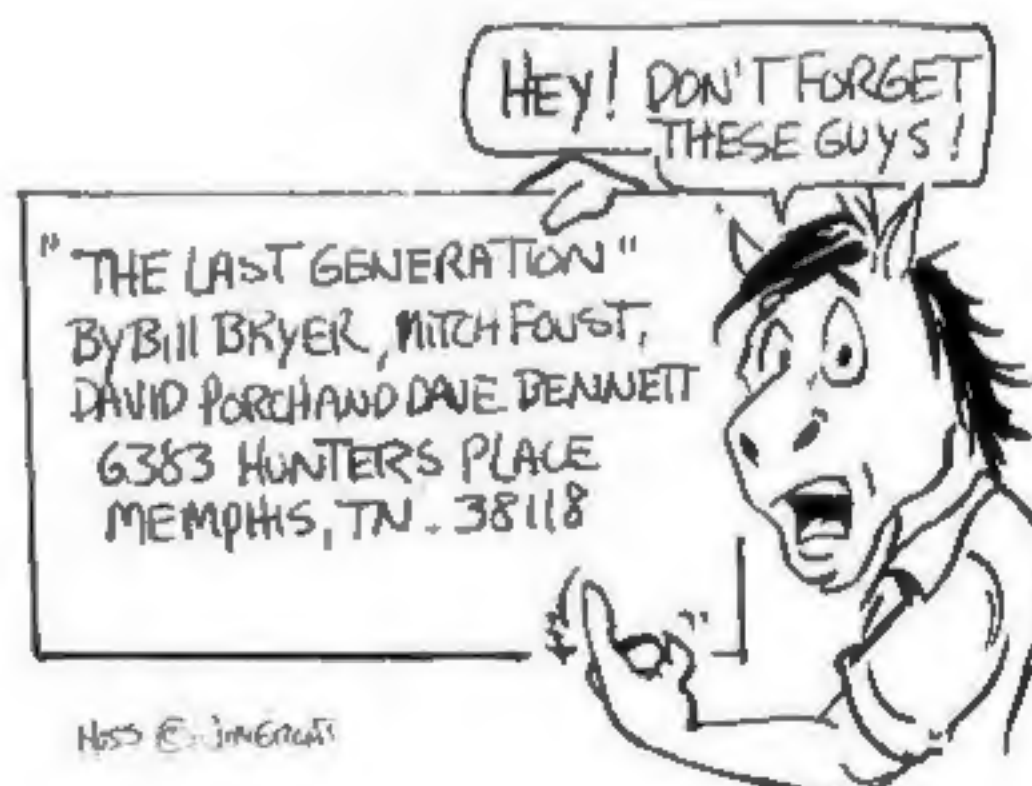 HEY! DON'T FORGET
THESE GUYS!
"THE LAST GENERATION"
BY Bill BRYER, MITCH FOUST,
DAVID PORCH AND DAVE BENNETT
6383 HUNTERS PLACE
MEMPHIS, TN. 38118